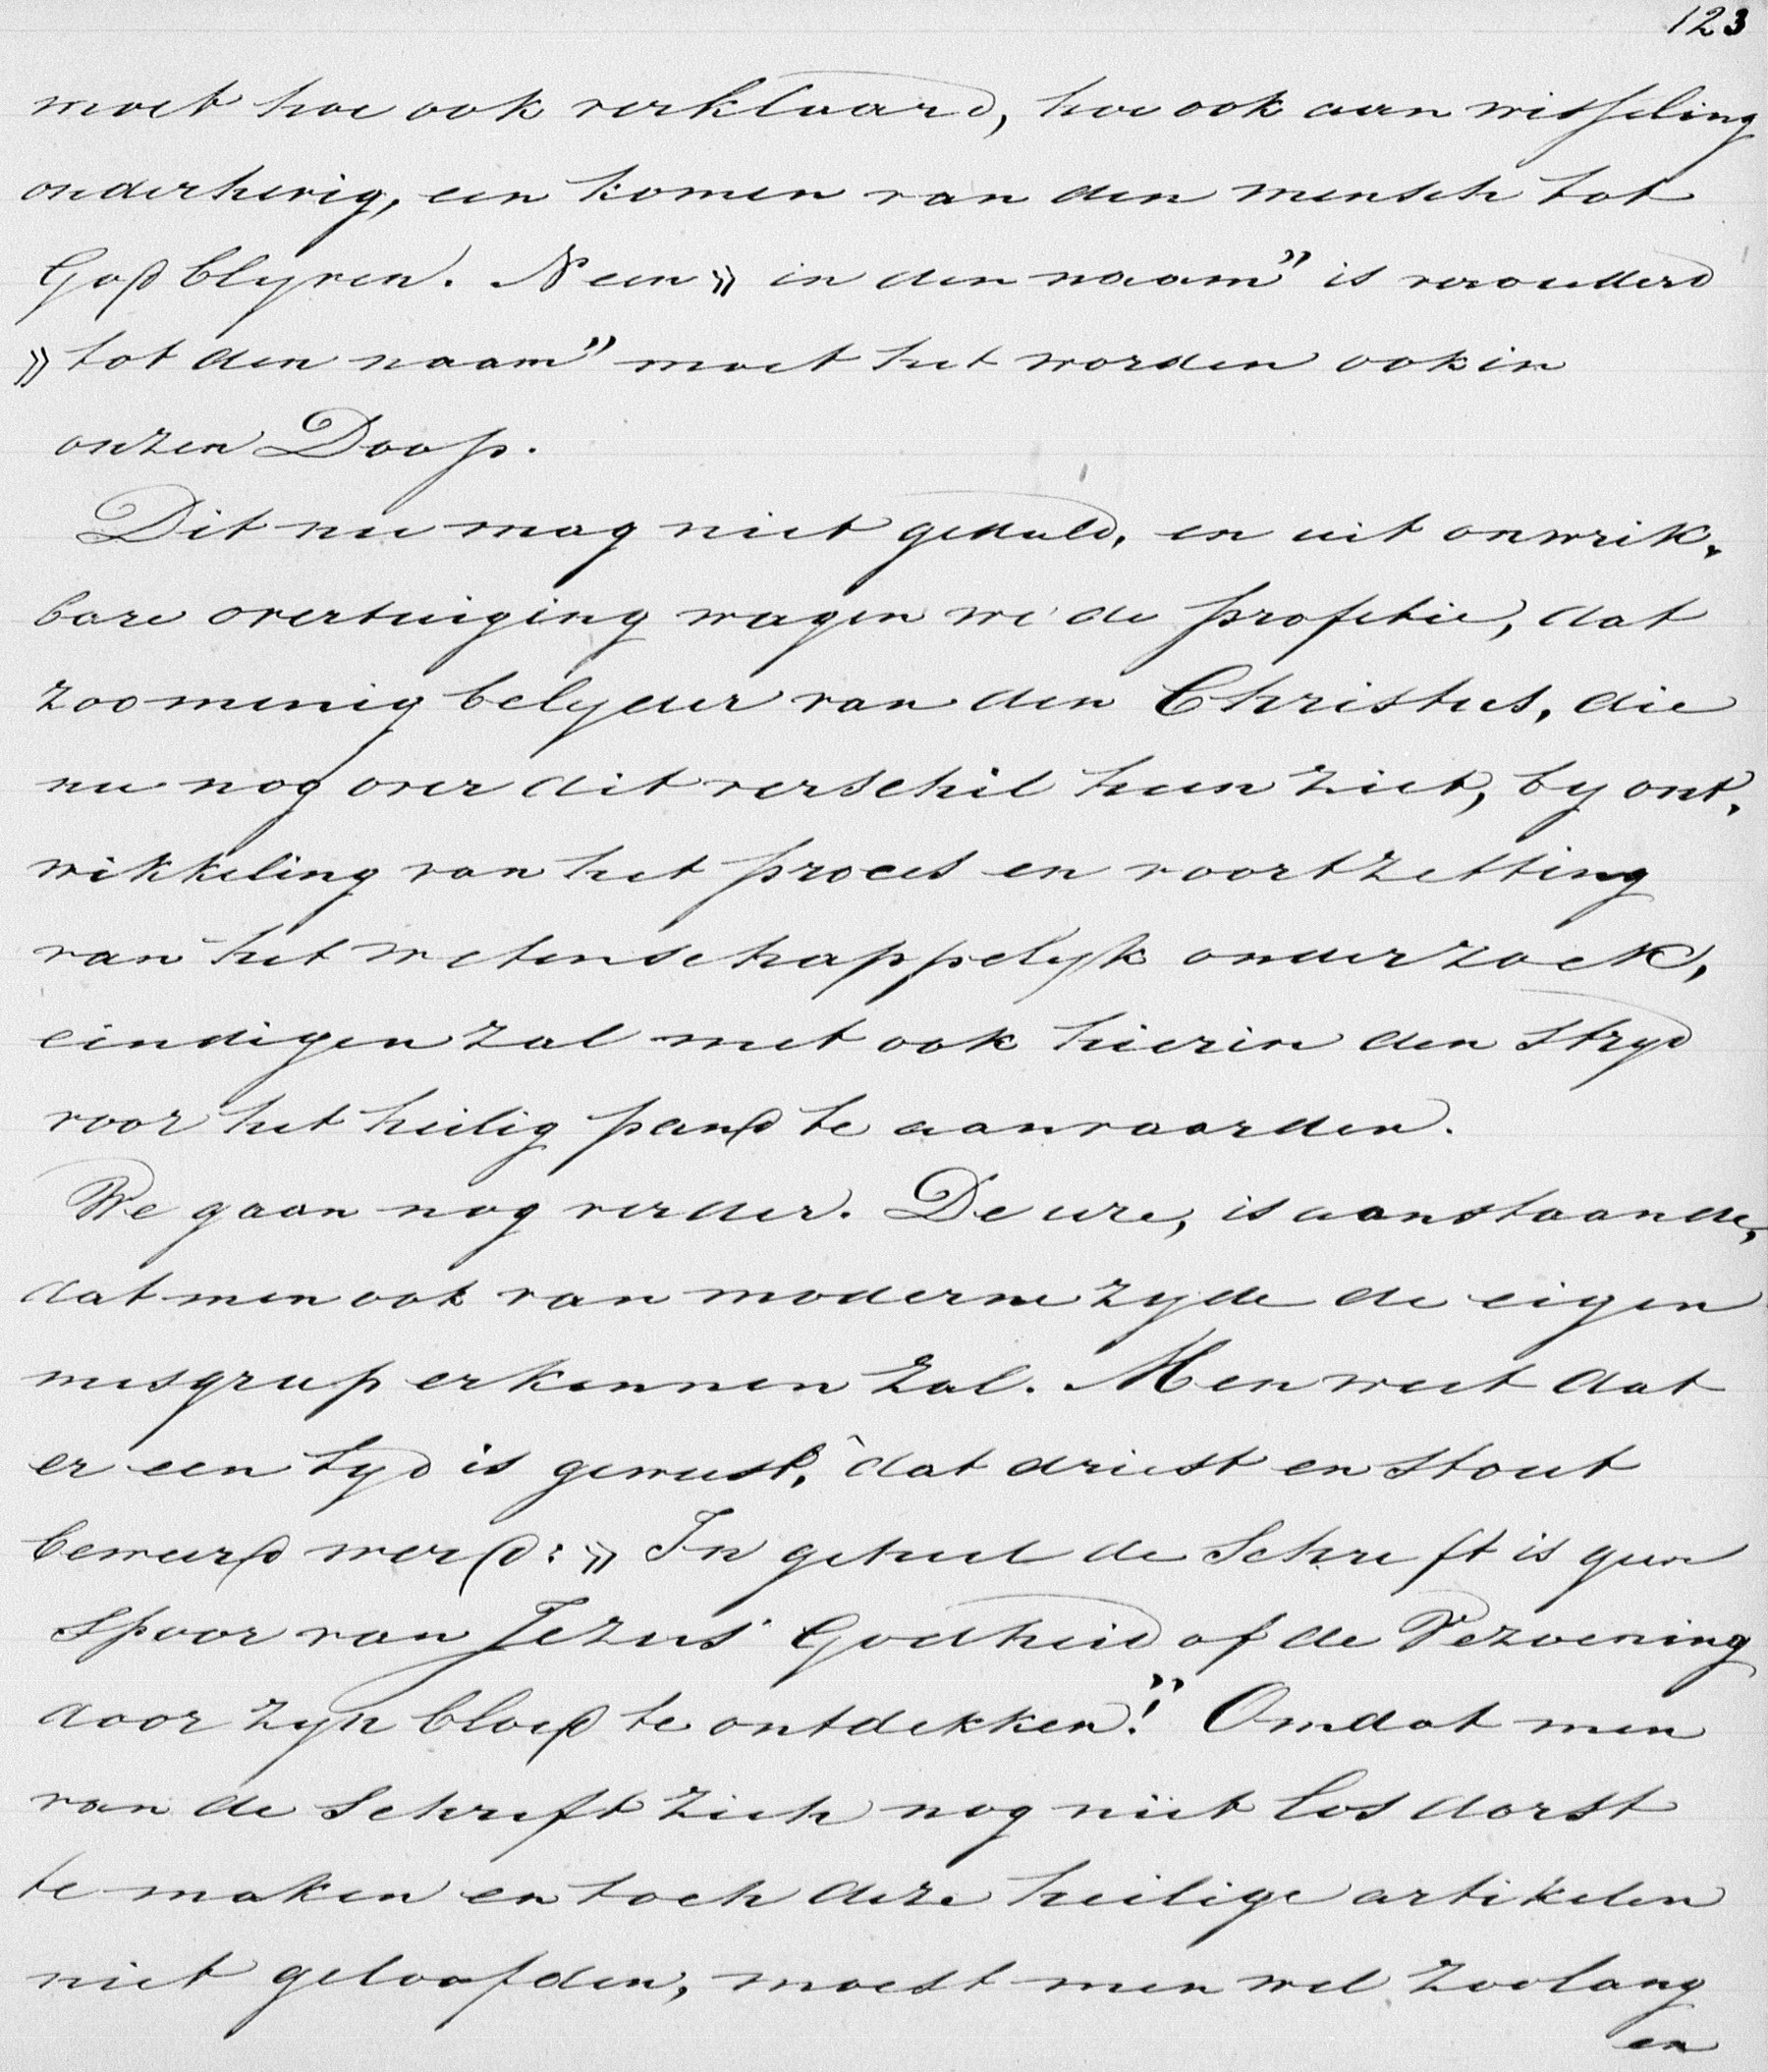 123
moet hoe ook verklaard, hoe ook aan wisseling
onderhevig, een komen van den mensch tot
God blyven. Neen » in den naam" is verouderd
» tot den naam" moet het worden ook in
onzen Doop.
Dit nu mag niet geduld, en uit onwrik-
bare overtuiging wagen we de profetie, dat
zoo menig belyder van den Christus, die
nu nog over dit verschil heen ziet, by ont-
wikkeling van het proces en voortzetting
van het wetenschappelyk onderzoek,
eindigen zal met ook hierin den stryd
voor het heilig pand te aanvaarden.
We gaan nog verder. De ure, is aanstaande,
dat men ook van moderne zyde de eigen
misgreep erkennen zal. Men weet dat
er een tyd is geweest, dat driest en stout
beweerd werd: » In geheel de Schrift is geen
spoor van Jezus' Godheid of de Verzoening
door zyn bloed te ontdekken!" Omdat men
van de Schrift zich nog niet los dorst
te maken en toch deze heilige artikelen
niet geloofden, moest men wel zoolang
en